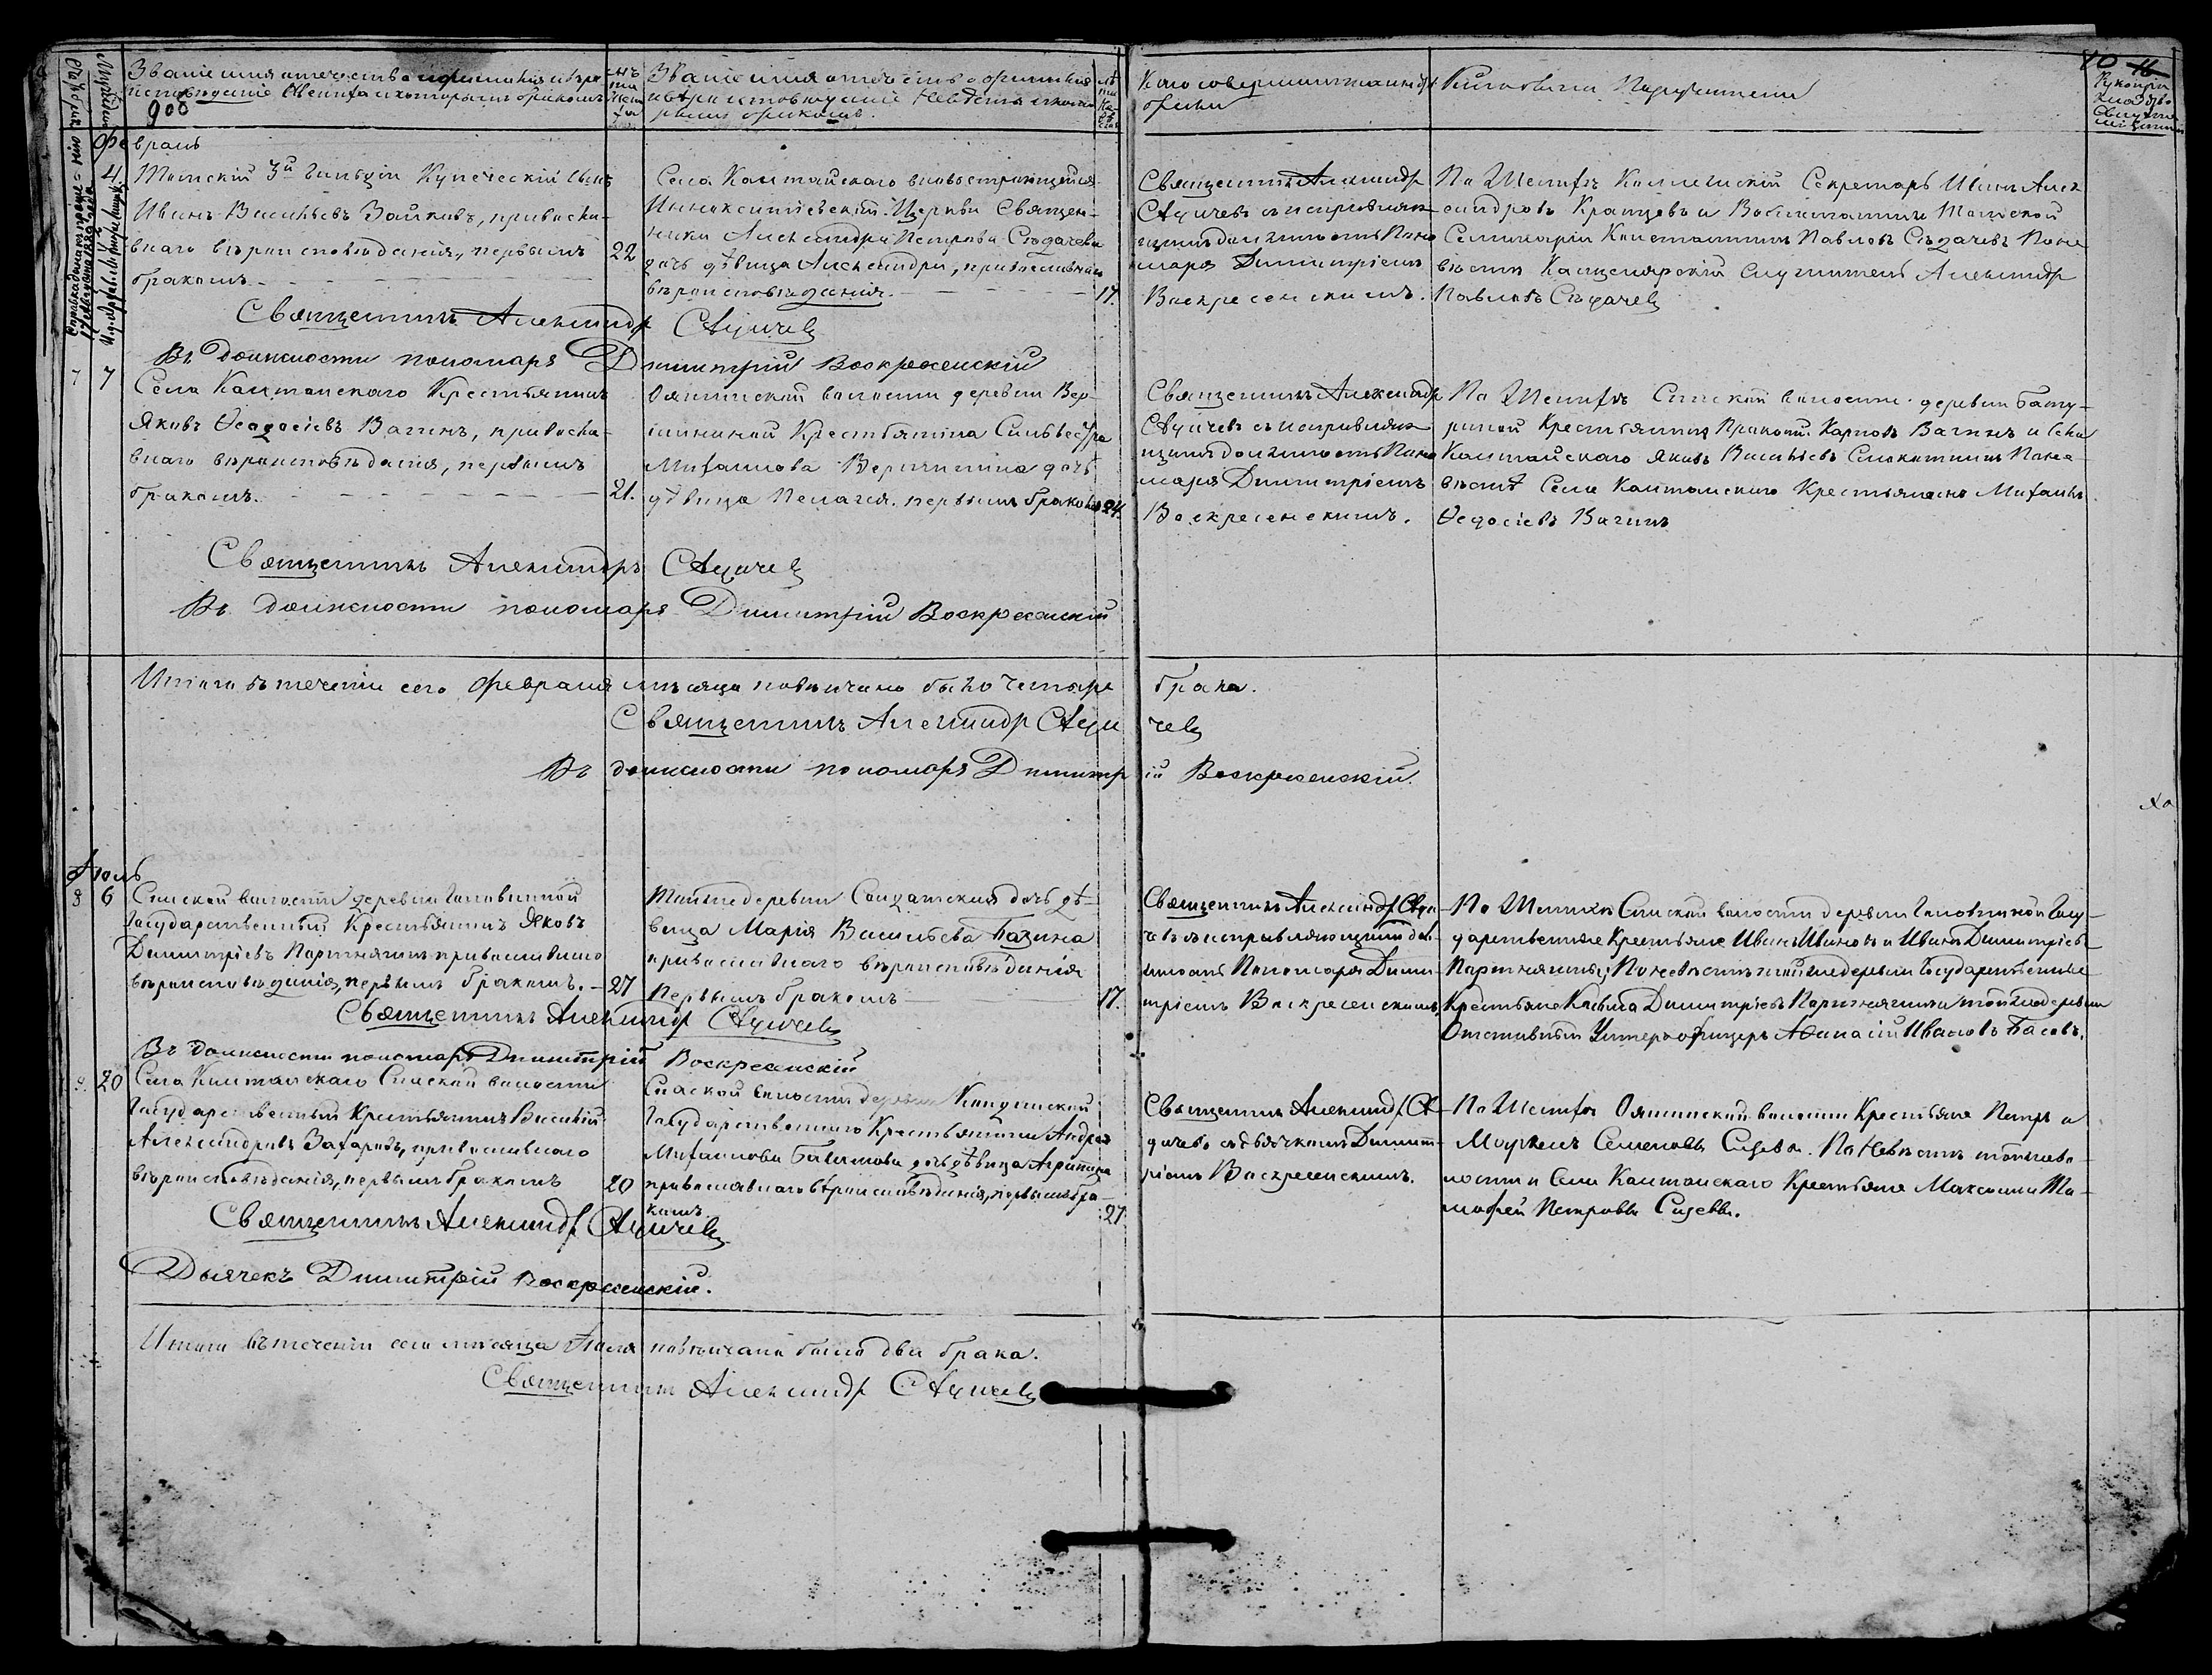 Званіе имя отечество и фамилія и вѣро
исповѣданіе Жениха и которымъ бракомъ
908
Званіе имя отечество фамилія
и вѣроисповѣданіе Невѣсты и кото
рымъ бракомъ.
Кто совершилъ таинство
брака
Кто были Поручители
10 16
Февраль
4. Томскій 3й Гильдіи Купеческій Сынъ
Иванъ Васильевъ Зайковъ, правосла-
внаго вѣроисповѣданія, первымъ 22
бракомъ.
Села Каштайскаго вновьстроющейся
Иннокентіевской Церкви Священ-
ника Александра Петрова Сѣдачева
дочь дѣвица Александра, православнаго
вѣроисповѣданія. 17.
Священникъ Александръ
Сѣдачевъ съ исправляю-
щимъ должность Поно
маря Димитріемъ
Воскресенскимъ.
По Женихѣ Коллежскій Секретарь Иванъ Алек
сандровъ Кранцевъ и Воспитанникъ Томской
Семинаріи Константинъ Павловъ Сѣдачевъ По не
вѣстѣ Канцелярскій служитель Александръ
Павловъ Сѣдачевъ
Священникъ Александръ Сѣдачевъ
Въ должности пономаря Димитрій Воскресенскій
7 7 Села Каштайскаго Крестьянинъ
Яковъ Ѳеодосіевъ Вагинъ, правосла-
внаго вѣроисповѣданія, первымъ
бракомъ. 21.
Ояшинской волости деревни Вер-
шининой Крестьянина Сильвестра
Михайлова Вершинина дочь
дѣвица Пелагея. первымъ бракомъ 24.
Священникъ Александръ
Сѣдачевъ съ исправляю-
щимъ должность Поно
маря Димитріемъ
Воскресенскимъ.
По Женихѣ Спасской волости деревни Бату-
риной Крестьянинъ Прокопій Карповъ Вагинъ и Села
Каштайскаго Яковъ Васильевъ Слокотинъ По не-
вѣстѣ Села Каштайскаго Крестьянинъ Михаилъ
Ѳедосіевъ Вагинъ
Священникъ Александръ Сѣдачевъ
Въ должности пономаря Димитрій Воскресенскій
Итого въ теченіи сего февраля мѣсяца повѣнчано было четыре брака.
Священникъ Александръ Сѣдачевъ
Въ должности пономаря Димитрій Воскресенскій.
Іюль
8 6 Спаской волости деревни Головиной
Государственный Крестьянинъ Яковъ
Димитріевъ Паршнягинъ православнаго
вѣроисповѣданія, первымъ бракомъ. 27
Той же деревни Солдатская дочь дѣ-
вица Марія Васильева Базина
православнаго вѣроисповѣданія
первымъ бракомъ 17.
Священникъ Александръ Сѣда-
чевъ съ исправляющимъ дол-
жность Пономаря Дими-
тріемъ Воскресенскимъ.
По Женихѣ Спаской волости деревни Головиной Госу-
дарственные Крестьяне Иванъ Ивановъ и Иванъ Димитріевъ
Паршнягины; По невѣстѣ той же деревни Государственные
Крестьяне Димитріевъ Паршнягинъ и той же деревни
Отставный Унтеръ офицеръ Аѳанасій Ивановъ Басовъ.
Священникъ Александръ Сѣдачевъ
Въ должности пономаря Димитрій Воскресенскій
9. 20 Села Каштайскаго Спаской волости
Государственный Крестьянинъ Василій
Александровъ Захаровъ, православнаго
вѣроисповѣданія, первымъ бракомъ 20
Спаской волости деревни Кандинской
Государственнаго Крестьянина Андрея
Михайлова Батитова дочь дѣвица Агрипина
православнаго вѣроисповѣданія, первымъ бра-
комъ. 27
Священникъ Александръ Сѣ-
дачевъ съ дьячкомъ Димит-
ріемъ Воскресенскимъ.
По Женихѣ Ояшинской волости Крестьяне Петръ и
Маркелъ Семеновы Сизевы. По Невѣстѣ той же во-
лости и Села Каштайскаго Крестьяне Максимъ и Ти-
мофей Петровы Сизевы.
Священникъ Александръ Сѣдачевъ
Дьячекъ Димитрій Воскресенскій.
Итого въ теченіи сего мѣсяца Іюля повѣнчано было два брака.
Священникъ Александръ Сѣдачевъ